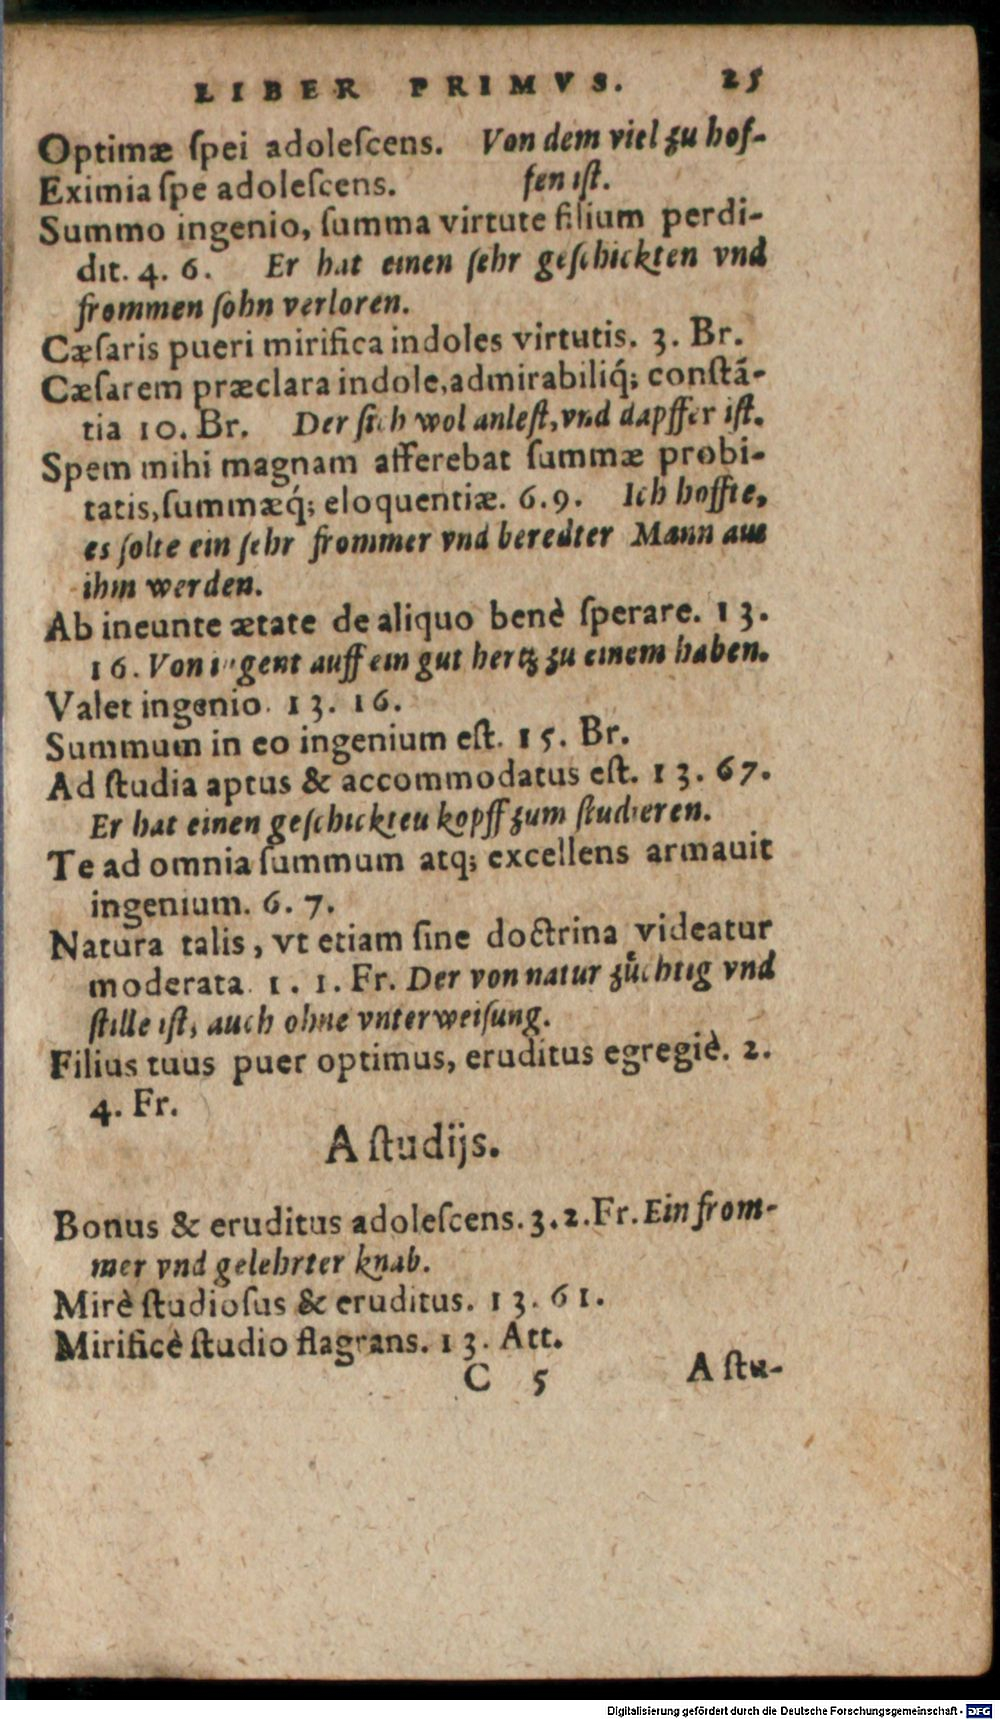 LIBER PRIMVS. 25
Optimæ ſpei adoleſcens. Von dem viel zu hof-
Eximia ſpe adoleſcens. fen iſt.
Summo ingenio, ſumma virtute filium perdi-
dit. 4. 6. Er hat einen ſehr geſchickten vnd
frommen ſohn verloren.
Cæſaris pueri mirifica indoles virtutis. 3. Br.
Cæſarem præclara indole, admirabiliq́; conſtã-
tia 10. Br. Der ſich wol anleſt, vnd dapffer iſt.
Spem mihi magnam afferebat ſummæ probi-
tatis, ſummæq́; eloquentiæ. 6. 9. Ich hoffte,
es ſolte ein ſehr frommer vnd beredter Mann aus
ihm werden.
Ab ineunte ætate de aliquo benè ſperare. 13.
16. Von iugent auff ein gut hertz zu einem haben.
Valet ingenio. 13. 16.
Summum in eo ingenium eſt. 15. Br.
Ad ſtudia aptus & accommodatus eſt. 13. 67.
Er hat einen geſchickteu kopff zum ſtudieren.
Te ad omnia ſummum atq; excellens armauit
ingenium. 6. 7.
Natura talis, vt etiam ſine doctrina videatur
moderata. 1. 1. Fr. Der von natur zuͤchtig vnd
ſtille iſt, auch ohne vnterweiſung.
Filius tuus puer optimus, eruditus egregiè. 2.
4. Fr.
A ſtudijs.
Bonus & eruditus adoleſcens. 3. 2. Fr. Ein from-
mer vnd gelehrter knab.
Mirè ſtudioſus & eruditus. 13. 61.
Mirificè ſtudio flagrans. 13. Att.
C 5 A ſtu-
Digitalisierung gefördert durch die Deutsche Forschungsgemeinschaft - DFG